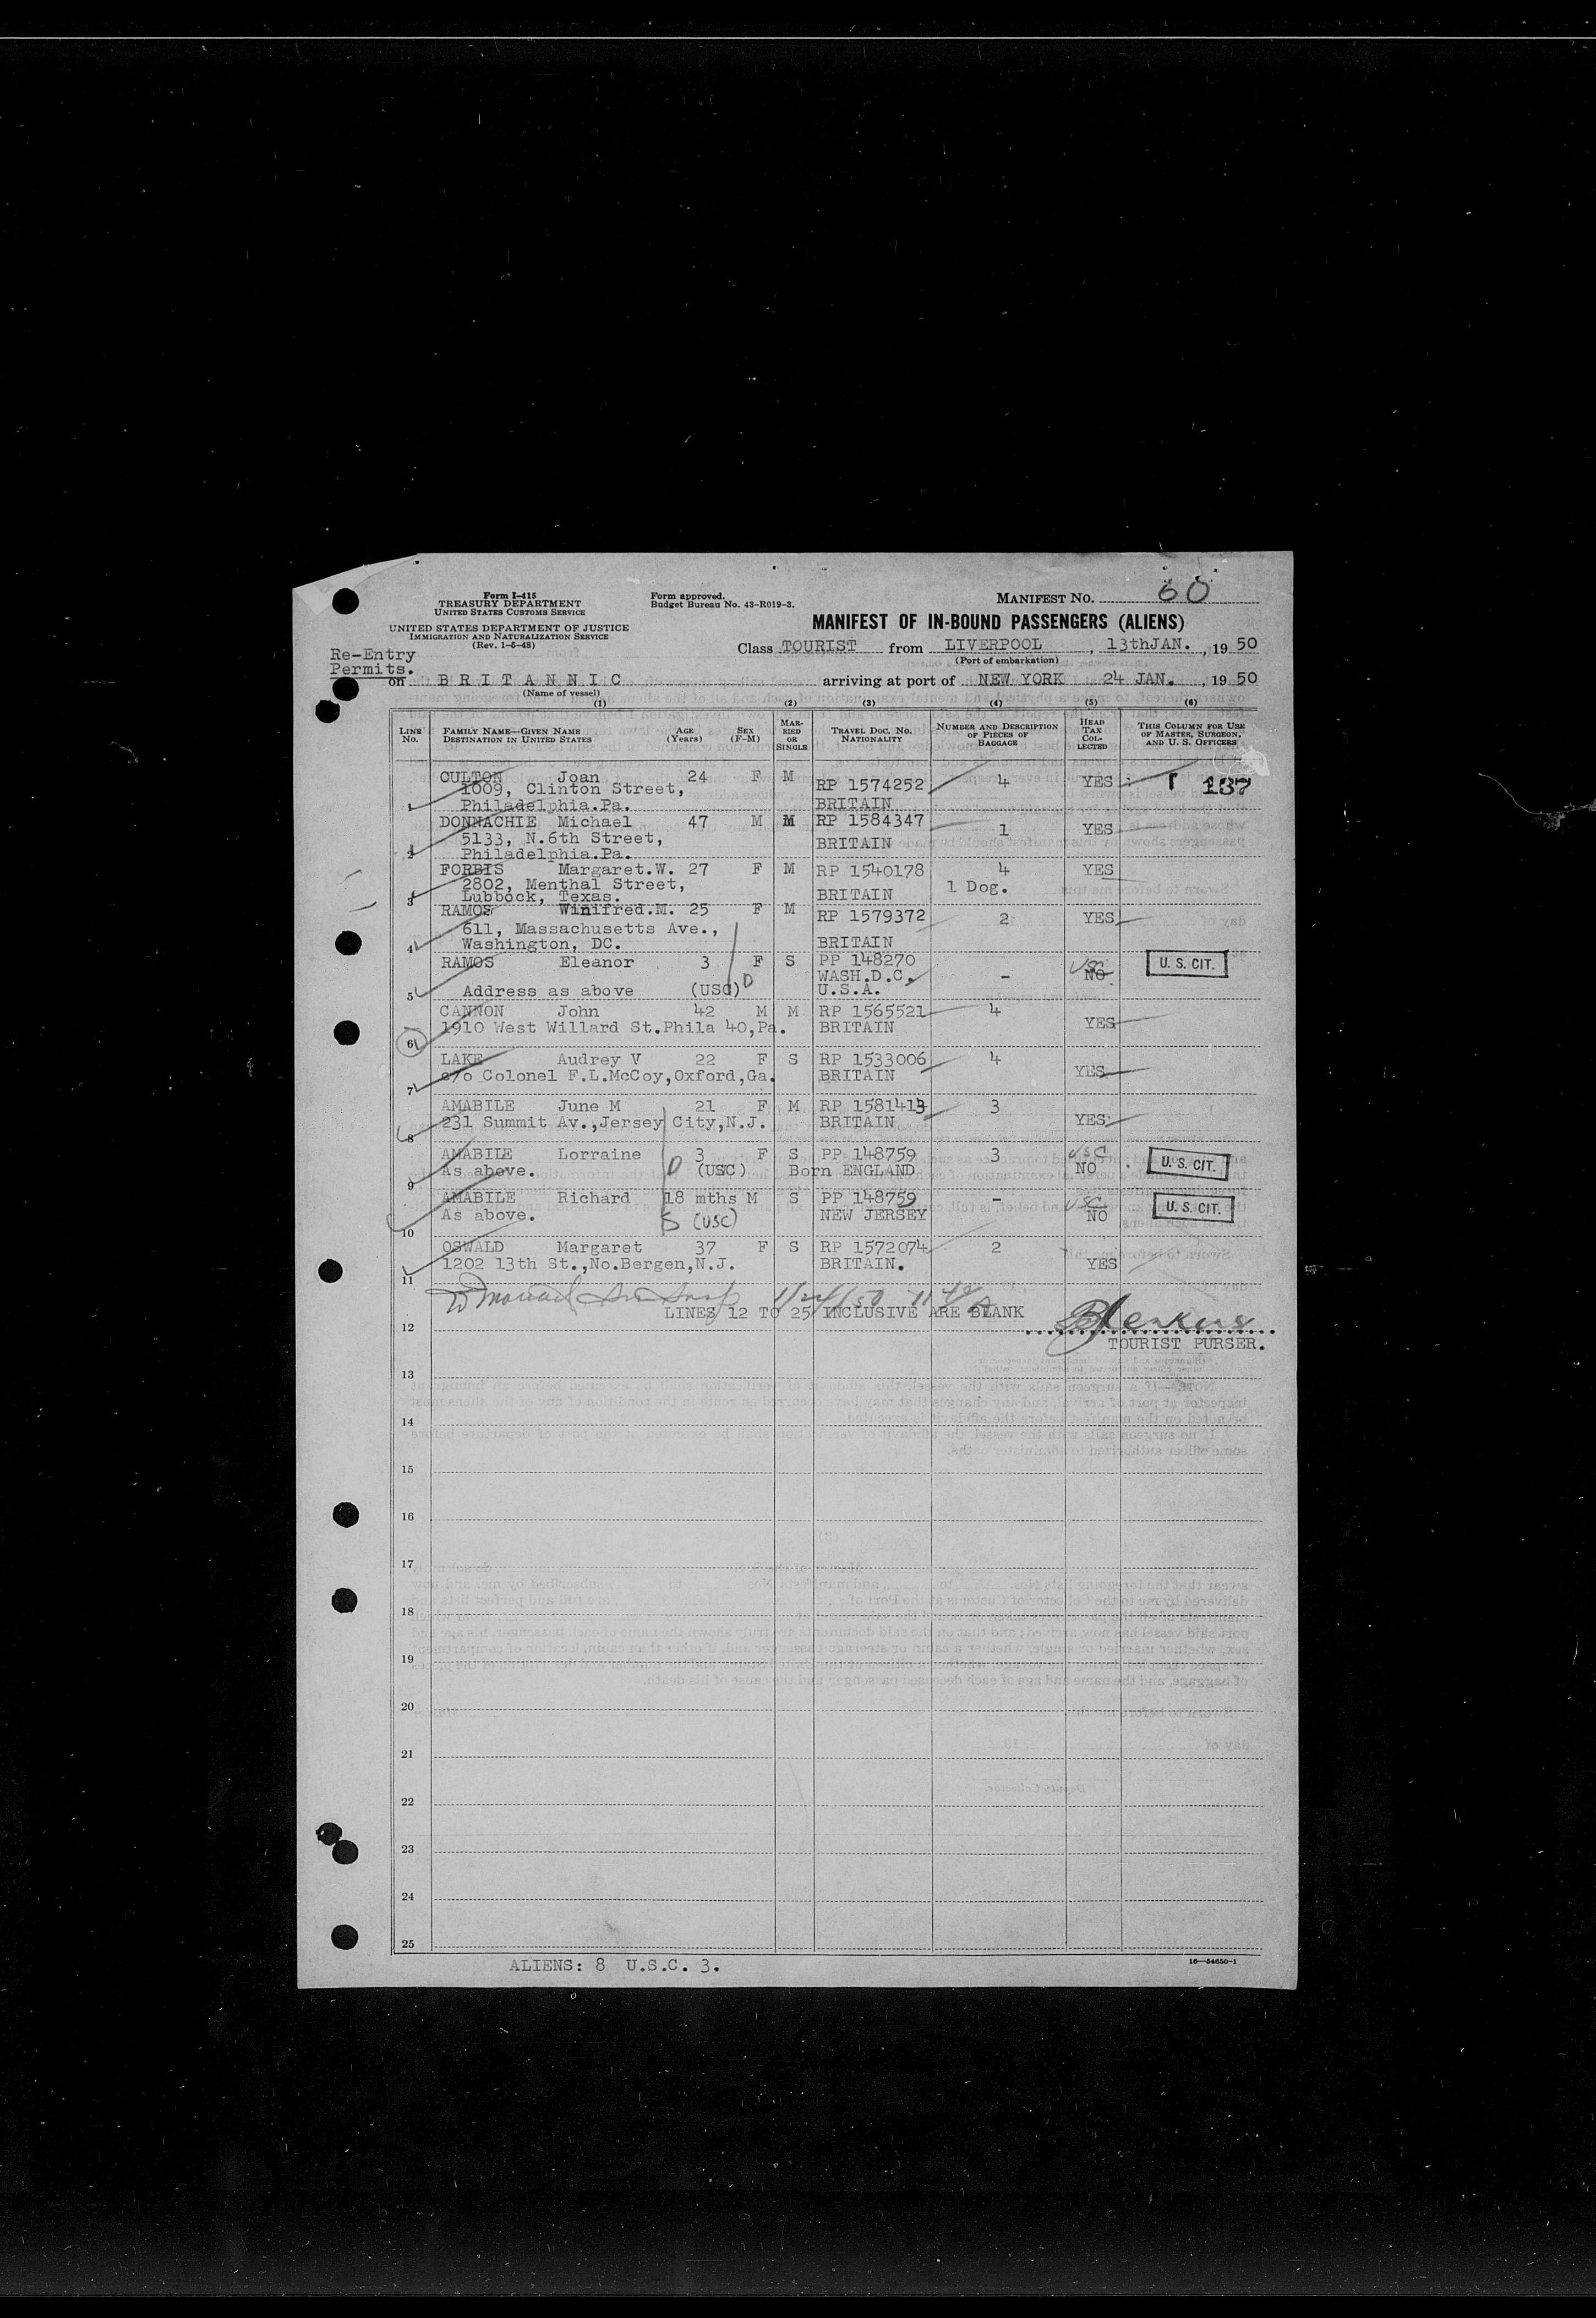 Form I-415
TREASURY DEPARTMENT
UNITED STATES CUSTOMS SERVICE
UNITED STATES DEPARTMENT OF JUSTICE
IMMIGRATION AND NATURALIZATION SERVICE
(Rev. 1-5-48)
Form approved.
Budget Bureau No. 43-R019-3.
MANIFEST NO. 60
MANIFEST OF IN-BOUND PASSENGERS (ALIENS)
Re-Entry
Permits.
Class TOURIST from LIVERPOOL, 13thJAN., 1950
(Port of embarkation)
on BRITANNIC arriving at port of NEW YORK 24 JAN., 1950
(Name of vessel)
(1) (2) (3) (4) (5) (6)
LINE No. FAMILY NAME—GIVEN NAME DESTINATION IN UNITED STATES AGE (Years) SEX (F-M) MARRIED OR SINGLE TRAVEL DOC. NO. NATIONALITY NUMBER AND DESCRIPTION OF PIECES OF BAGGAGE HEAD TAX COLLECTED THIS COLUMN FOR USE OF MASTER, SURGEON, AND U. S. OFFICERS
CULTON Joan 24 F M RP 1574252 4 YES 137
1009, Clinton Street,
1 Philadelphia.Pa. BRITAIN
DONNACHIE Michael 47 M M RP 1584347 1 YES
5133, N.6th Street, BRITAIN
2 Philadelphia.Pa.
FORBIS Margaret.W. 27 F M RP 1540178 4 YES
2802, Menthal Street, 1 Dog.
3 Lubbock, Texas. BRITAIN
RAMOS Winifred.M. 25 F M RP 1579372 2 YES
611, Massachusetts Ave.,
4 Washington, DC. BRITAIN
RAMOS Eleanor 3 F S PP 148270 - USC U. S. CIT.
WASH.D.C. NO
5 Address as above (USC) D U.S.A.
CANNON John 42 M M RP 1565521 4 YES
1910 West Willard St.Phila 40,Pa. BRITAIN
6
LAKE Audrey V 22 F S RP 1533006 4
7 c/o Colonel F.L.McCoy,Oxford,Ga. BRITAIN YES
AMABILE June M 21 F M RP 1581413 3
8 231 Summit Av.,Jersey City,N.J. BRITAIN YES
AMABILE Lorraine 3 F S PP 148759 3 USC U. S. CIT.
9 As above. D (USC) Born ENGLAND NO
AMABILE Richard 18 mths M S PP 148759 - USC U. S. CIT.
10 As above. S (USC) NEW JERSEY NO
OSWALD Margaret 37 F S RP 1572074 2
11 1202 13th St.,No.Bergen,N.J. BRITAIN. YES
1/24/50
12 LINES 12 TO 25 INCLUSIVE ARE BLANK
TOURIST PURSER.
13
14
15
16
17
18
19
20
21
22
23
24
25
ALIENS: 8 U.S.C. 3.
16—54650-1